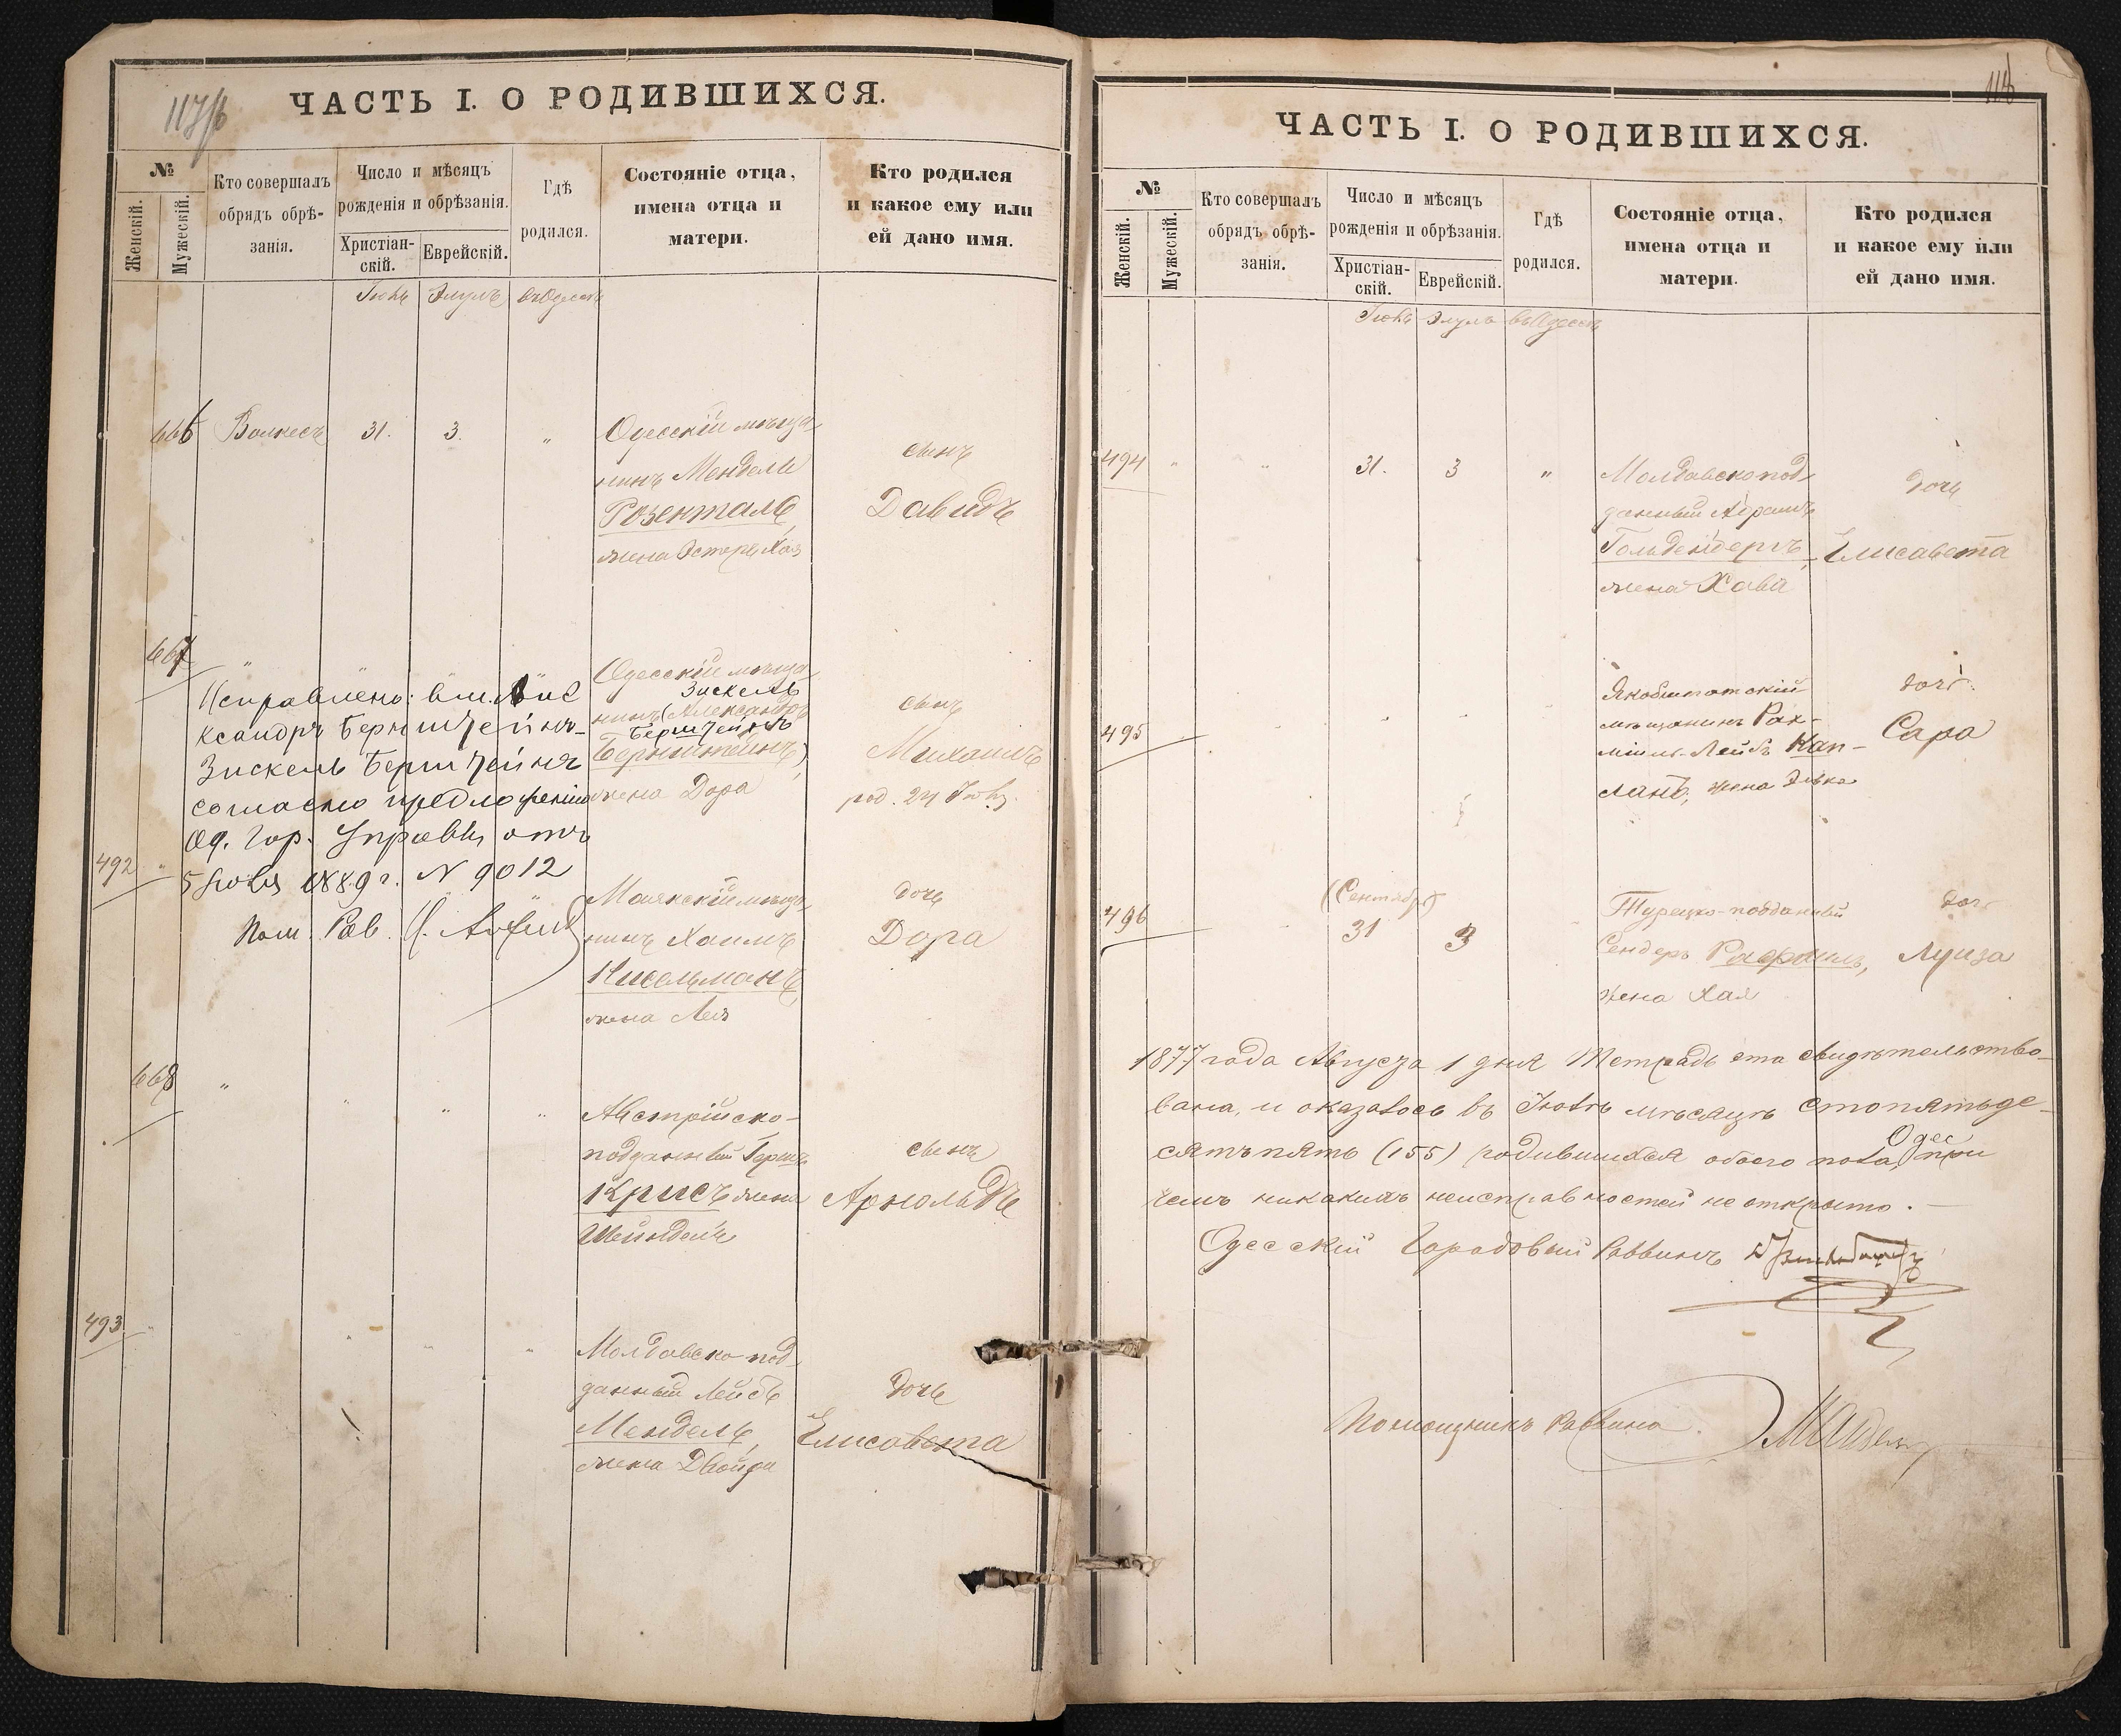 117/б
ЧАСТЬ I. О РОДИВШИХСЯ.
№
Женскій.
Мужескій.
Кто совершалъ
обрядъ обрѣ-
занія.
Число и мѣсяцъ
рожденія и обрѣзанія.
Христіан-
скій.
Еврейскій.
Гдѣ
родился.
Состояніе отца,
имена отца и
матери.
Кто родился
и какое ему или
ей дано имя.
Іюль Элулъ въ Одессѣ
666 Волкесъ 31. 3. „ Одесскій мѣща-
нинъ Мендель
Розенталь,
жена Эстеръ Хая
сынъ
Давидъ
667 „ „ Одесскій мѣща-
Зискель
нинъ (Александръ
Берштейнъ
Бернштейнъ),
жена Дора
сынъ
Михаилъ
род. 24 Іюля.
Исправлено: вм. Але
ксандръ Бернштейнъ-
Зискель Берштейнъ
согласно предложенію
Од. Гор. Управы отъ
5 Іюля 1889 г. N 9012
Пом. Рав.
492 „ Маякскій мѣща-
нинъ Хаимъ
Кисельманъ,
жена Лея
дочь
Дора
668 „ „ „ „ Австрійско-
подданный Гершъ
Крисъ жена
Шейндель
сынъ
Арнольдъ
493 „ „ „ „ Молдавско-под-
данный Лейбъ
Мендель,
жена Двойра
дочь
Елисавета
118
ЧАСТЬ I. О РОДИВШИХСЯ.
№
Женскій.
Мужескій.
Кто совершалъ
обрядъ обрѣ-
занія.
Число и мѣсяцъ
рожденія и обрѣзанія.
Христіан-
скій.
Еврейскій.
Гдѣ
родился.
Состояніе отца,
имена отца и
матери.
Кто родился
и какое ему или
ей дано имя.
Іюль Элулъ въ Одессѣ
494 „ „ 31. 3 „ Молдавско под-
данный Абрамъ
Гольденбергъ,
жена Хава
дочь
Елисавета
495 Якобштатскій
мѣщанинъ Рах-
міиль-Лейбъ Кап-
ланъ, жена Элька
дочь
Сара
496 (Сентябрь)
31 3 Турецко-подданный
Сендеръ Рафаилъ,
жена Хая
дочь
Луиза
1877 года Августа 1 дня Тетрадь эта свидѣтельство-
вана, и оказалось въ Іюлѣ мѣсяцѣ стопятьде-
сятъ пять (155) родившихся обоего пола, при
чемъ никакихъ неисправностей не открыто. -
Одесскій Городовой Раввинъ
Помощникъ Раввина.